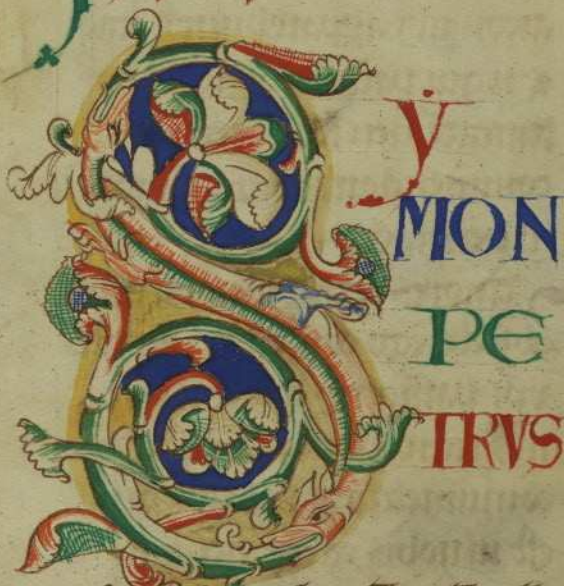 Sẏ
MON
PE
TRVS